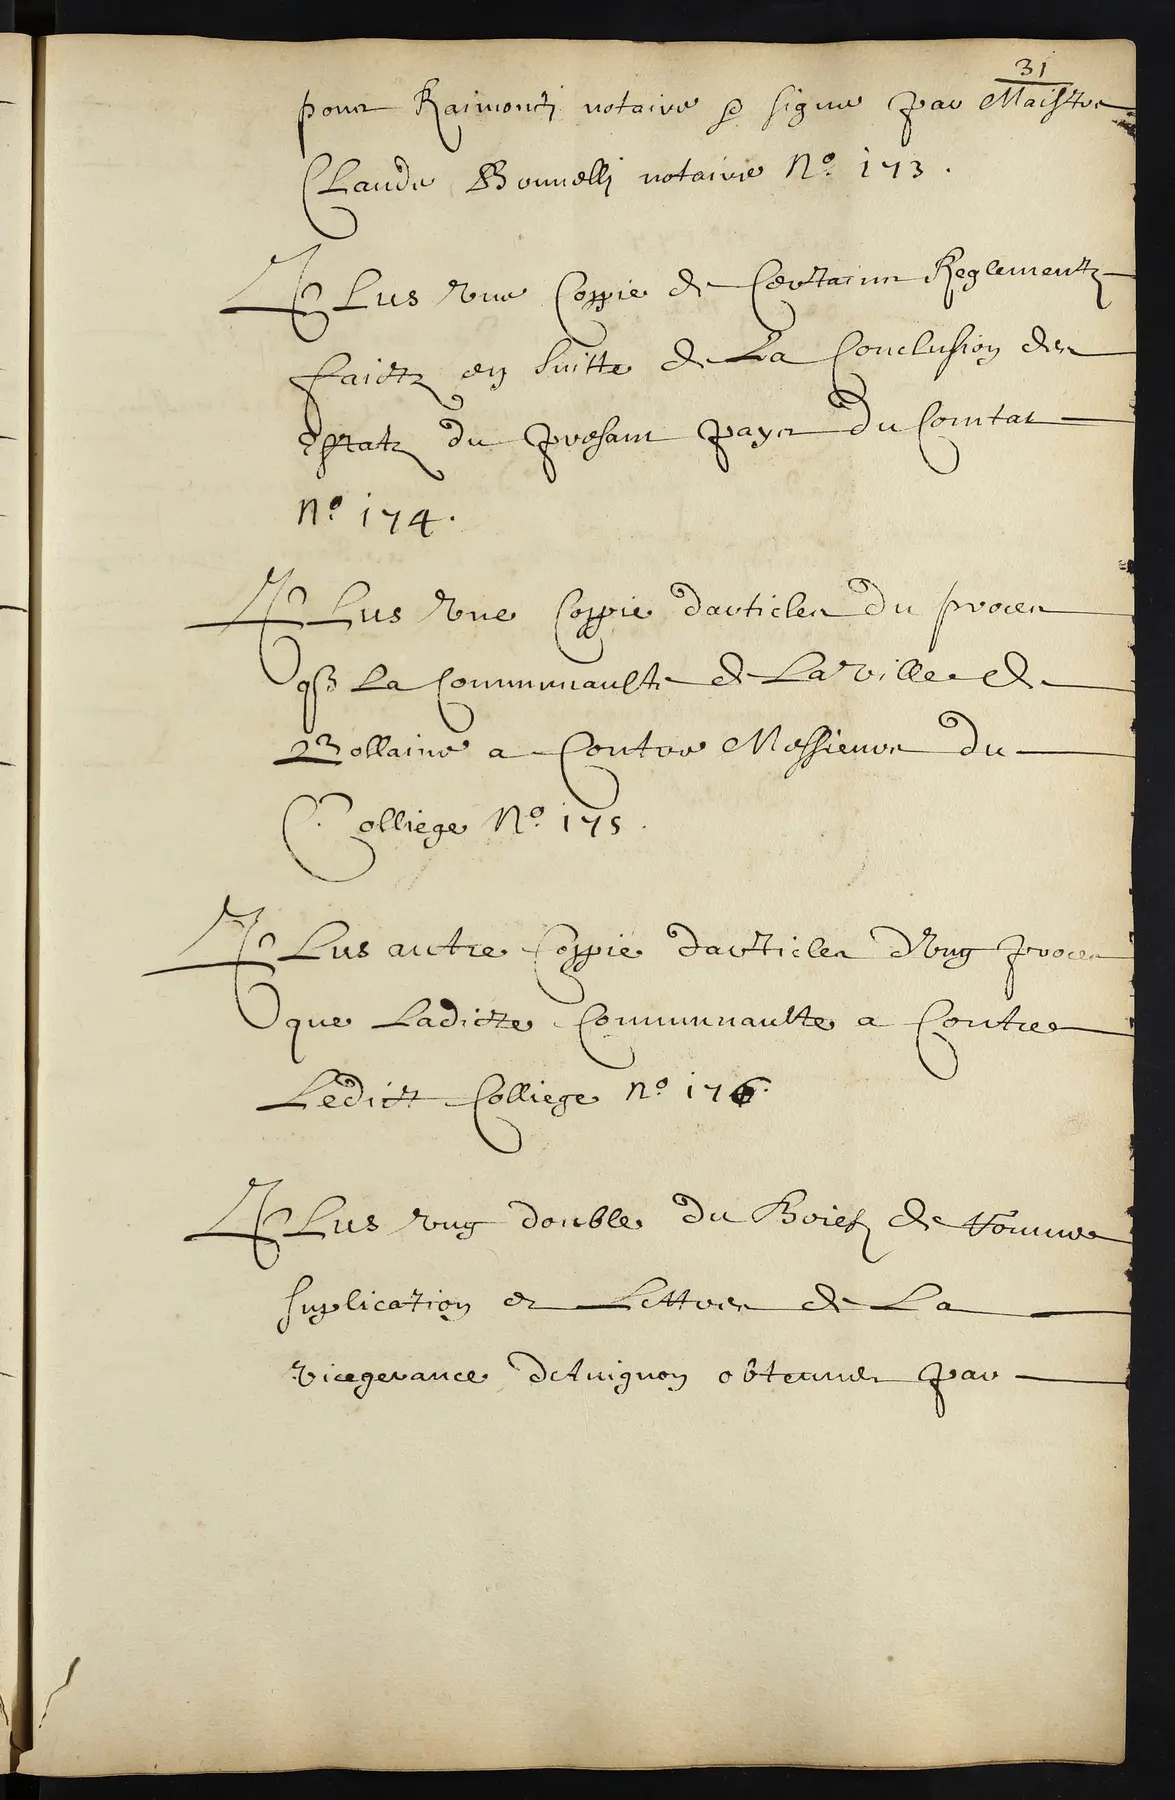 31
pons Raimondj notaire & signe par Maistre
CLaude Bonnellj notaire N.º 173.
PLus vne Coppie de Certains Reglementz
faictz en suitte de La Conclusion des
estatz du presant pays du Comtat
N.º 174.
PLus vne Coppie darticles du proces
que La Communaulte de La ville de
Bollaine a Contre Messieurs du
Colliege N.º 175.
PLus autre Coppie darticles dvng proces
que Ladicte Communaulte a Contre
Ledict Colliege N.º 176.
PLus vng double du Brief de
suplication et Lettres de La
vicegerance dAuignon obtenues par